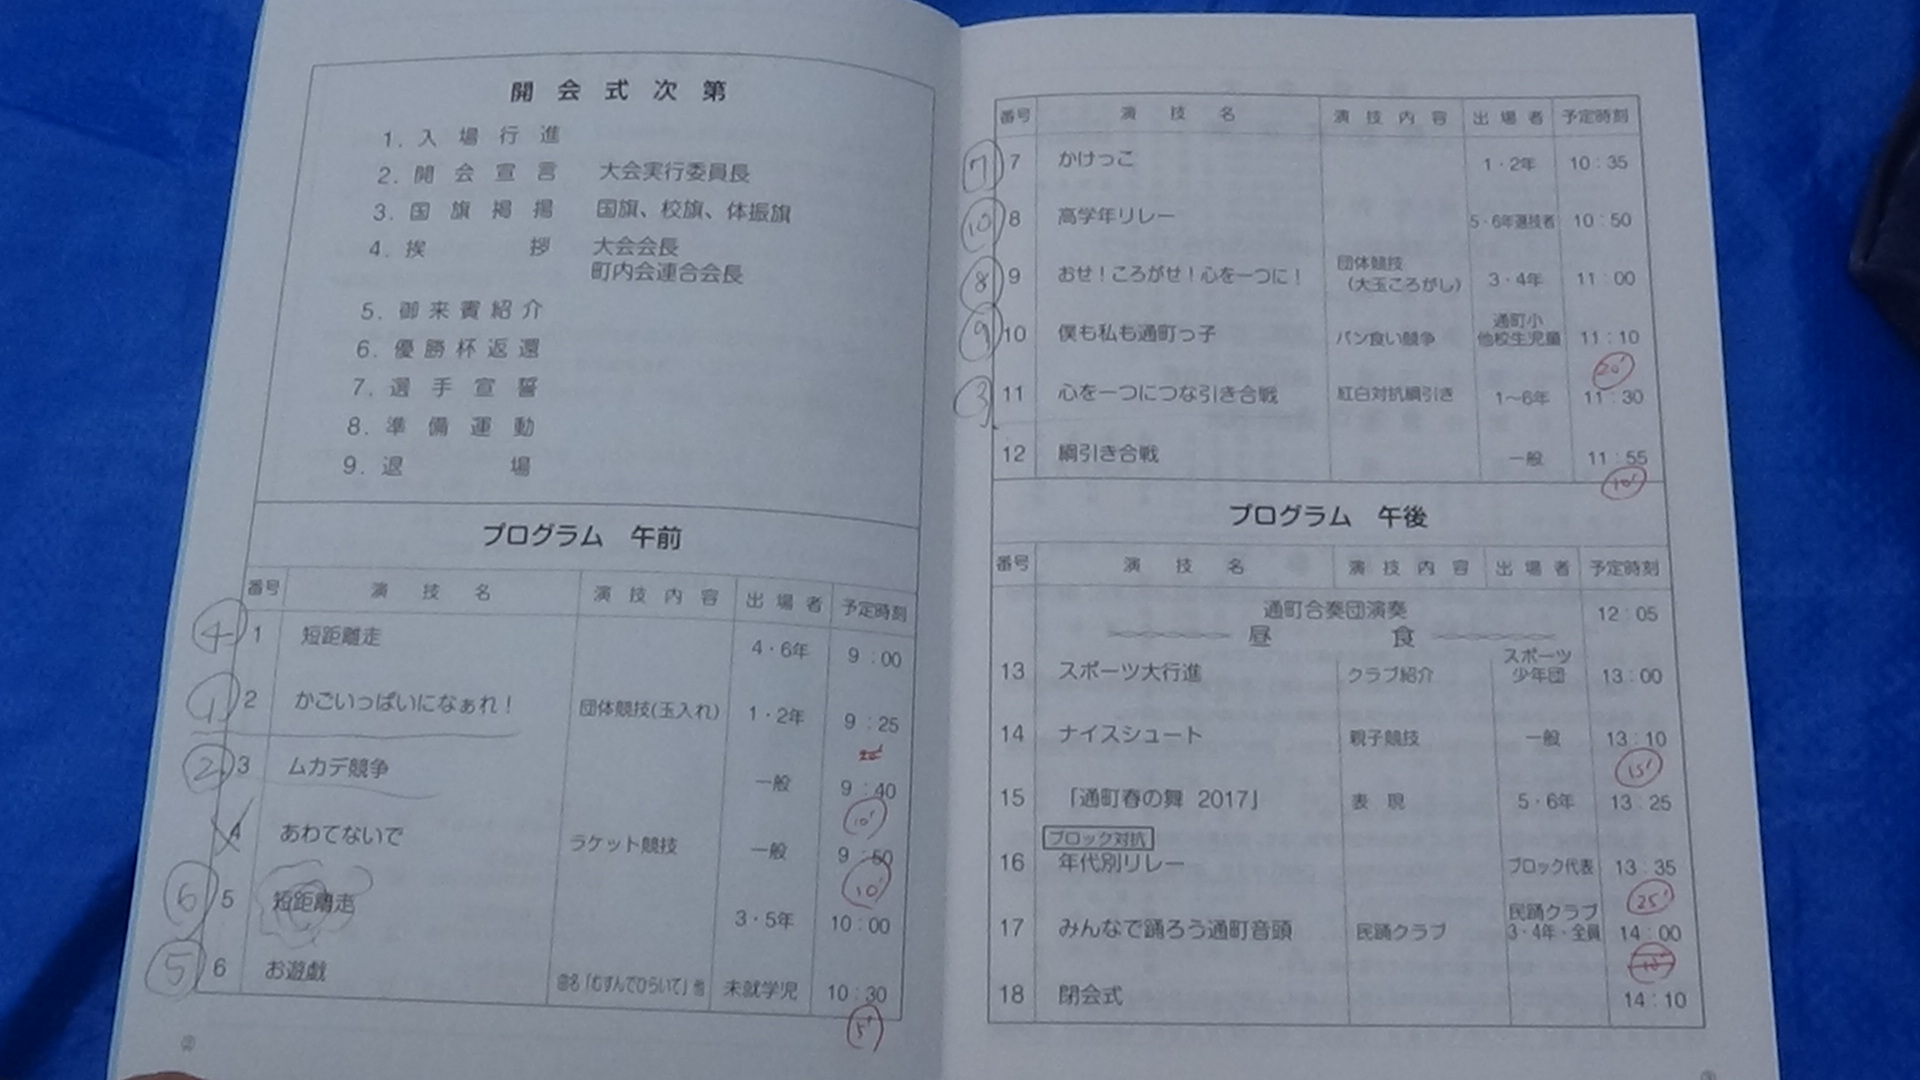 開会式次第
1. 入場行進
2. 開会宣言 大会実行委員長
3. 国旗掲揚 国旗、校旗、体振旗
4. 挨拶 大会会長
町内会連合会長
5. 御来賓紹介
6. 優勝杯返還
7. 選手宣誓
8. 準備運動
9. 退場
プログラム 午前
番号 演技名 演技内容 出場者 予定時刻
④ 1 短距離走 4・6年 9:00
① 2 かごいっぱいになぁれ! 団体競技(玉入れ) 1・2年 9:25
② 3 ムカデ競争 一般 9:40
10'
4 あわてないで ラケット競技 一般 9:50
10'
⑥ 5 短距離走 3・5年 10:00
⑤ 6 お遊戯 曲名「むすんでひらいて」他 未就学児 10:30
5'
②
番号 演技名 演技内容 出場者 予定時刻
⑦ 7 かけっこ 1・2年 10:35
⑩ 8 高学年リレー 5・6年選技者 10:50
⑧ 9 おせ!ころがせ!心を一つに! 団体競技(大玉ころがし) 3・4年 11:00
⑨ 10 僕も私も通町っ子 パン食い競争 通町小他校生児童 11:10
20'
③ 11 心を一つにつな引き合戦 紅白対抗綱引き 1〜6年 11:30
12 綱引き合戦 一般 11:55
10'
プログラム 午後
番号 演技名 演技内容 出場者 予定時刻
通町合奏団演奏 12:05
昼食
13 スポーツ大行進 クラブ紹介 スポーツ少年団 13:00
14 ナイスシュート 親子競技 一般 13:10
15'
15 「通町春の舞 2017」 表現 5・6年 13:25
ブロック対抗
16 年代別リレー ブロック代表 13:35
25'
17 みんなで踊ろう通町音頭 民踊クラブ 民踊クラブ3・4年・全員 14:00
10'
18 閉会式 14:10